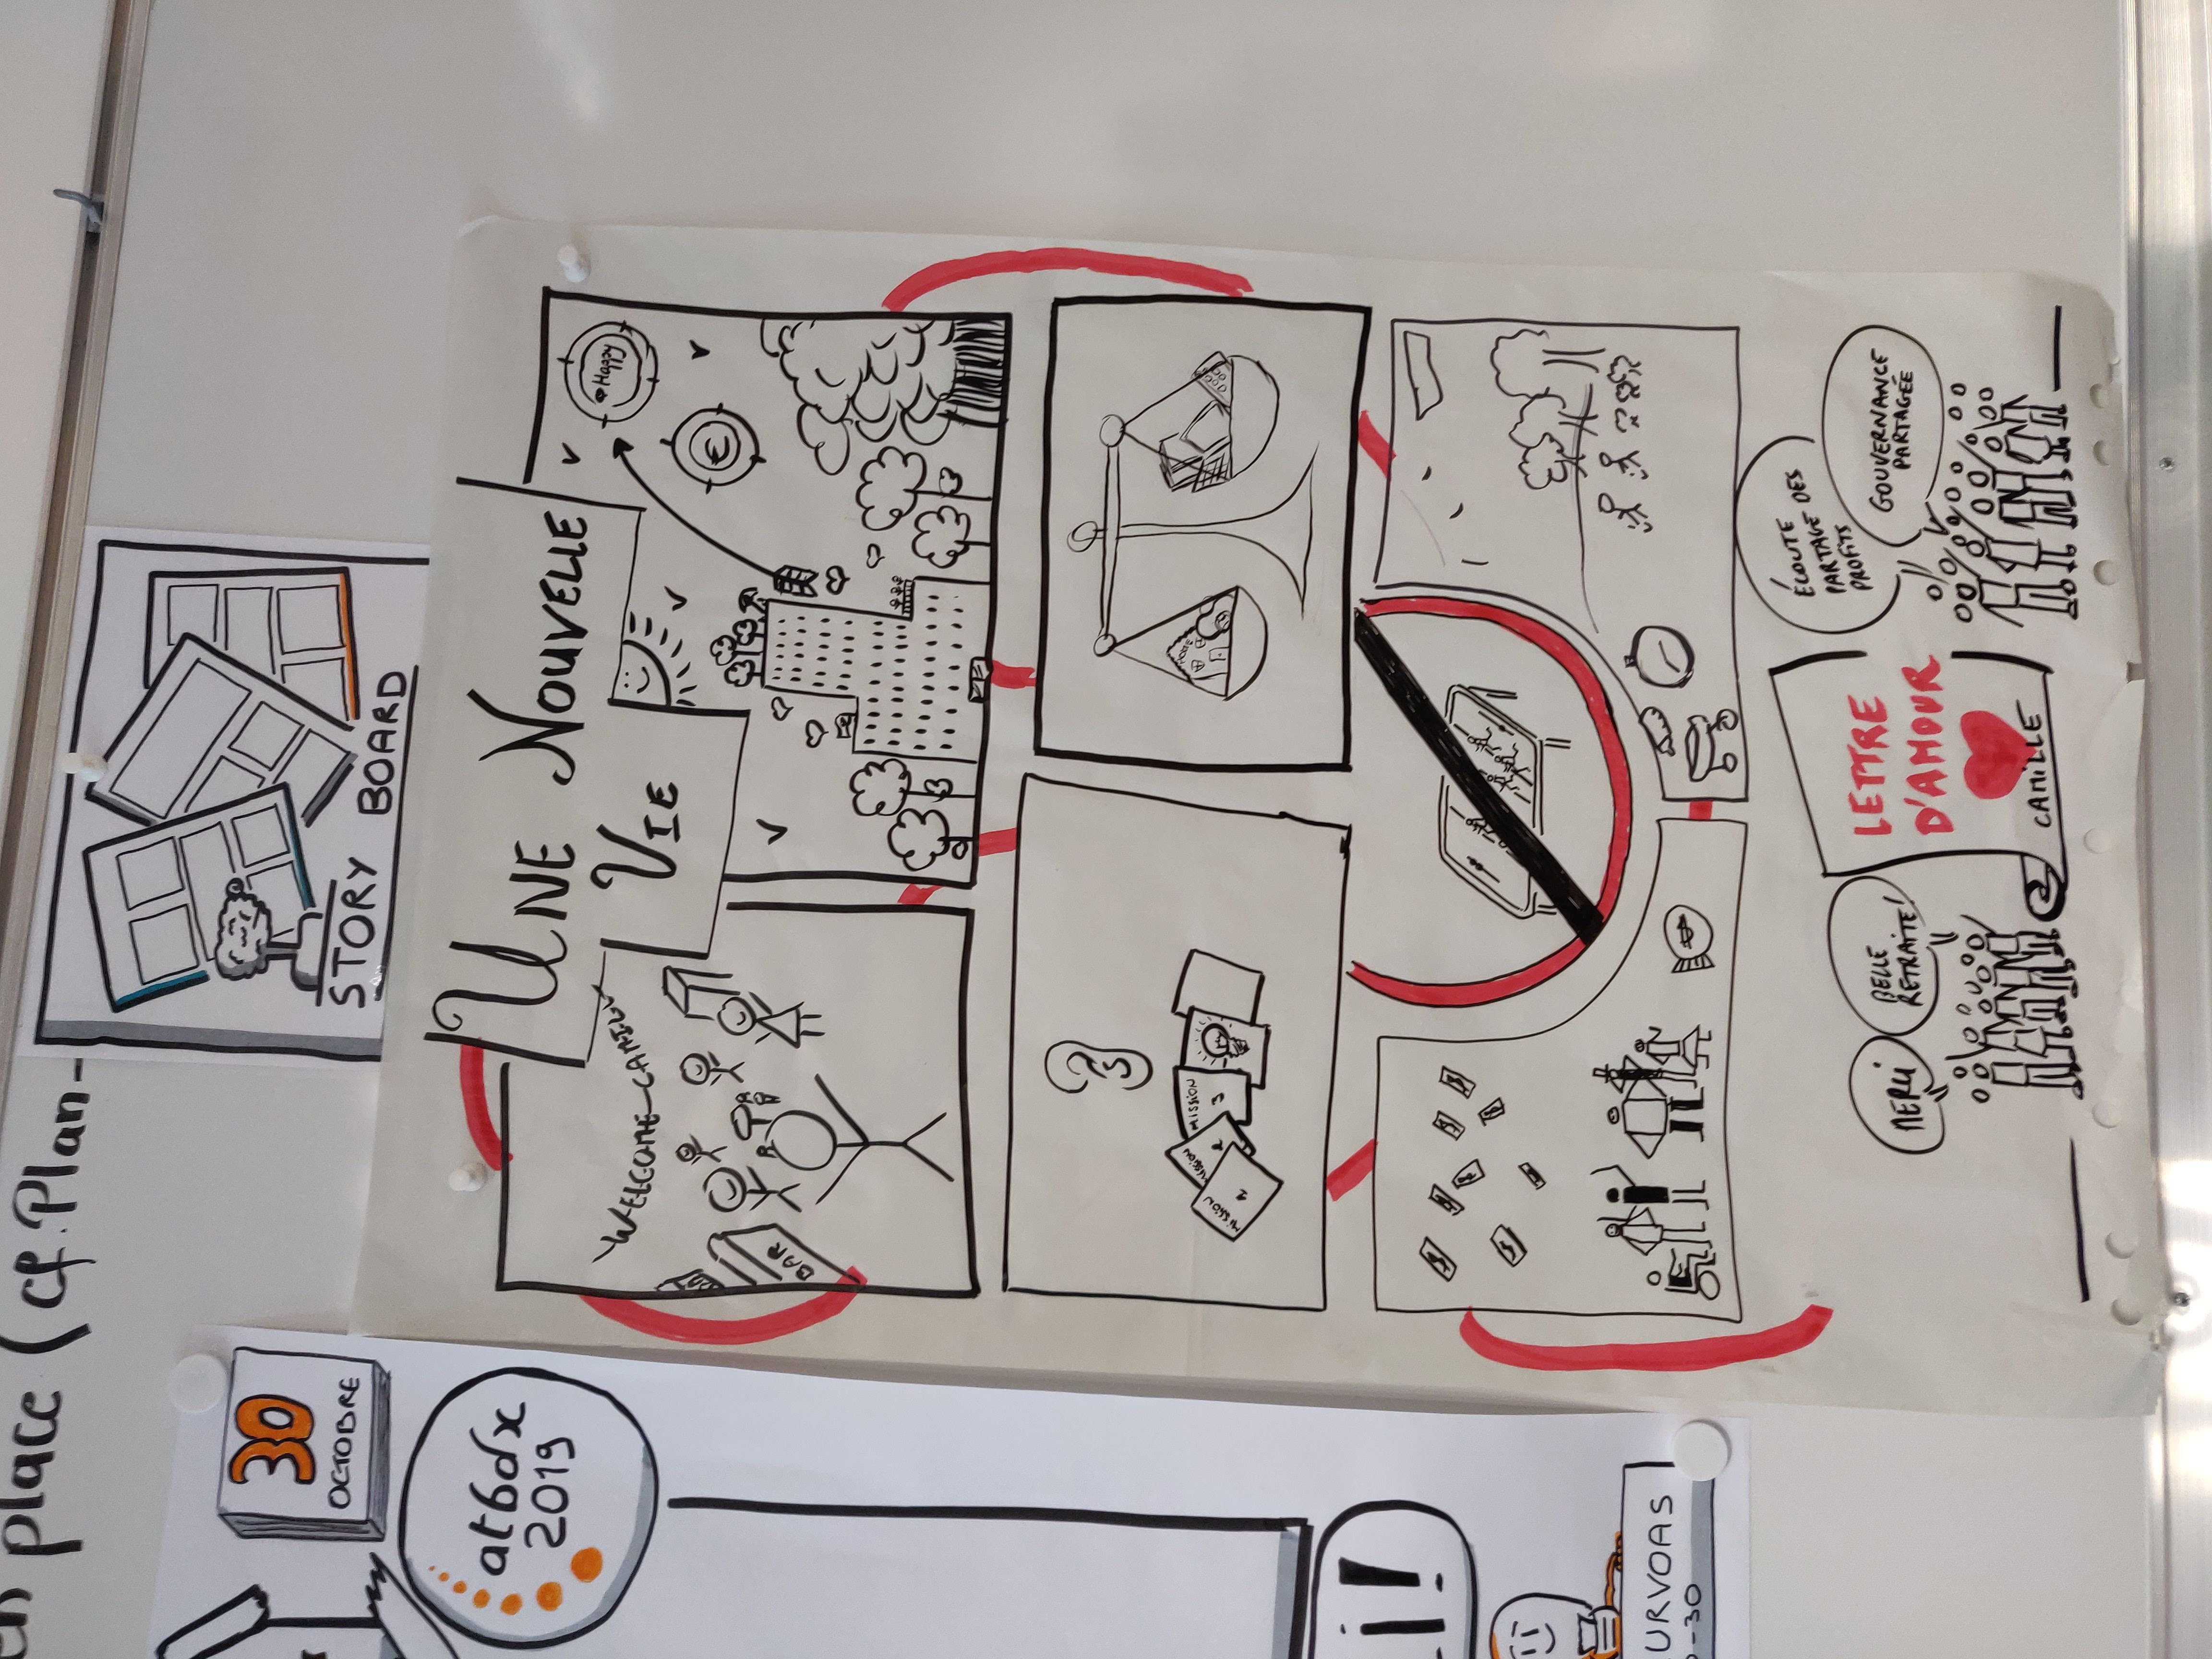 en place (cf. Plan-
30
OCTOBRE
atbdx
2019
STORY BOARD
UNE NOUVELLE
VIE
WELCOME CAMILLE
BAR
Happy
€
MISSION
1
MISSION
2
MISSION
3
HOME
i!
URVOAS
-30
MERCI
BELLE
RETRAITE!
LETTRE
D'AMOUR
CAMILLE
ÉCOUTE
PARTAGE DES
PROFITS
GOUVERNANCE
PARTAGÉE